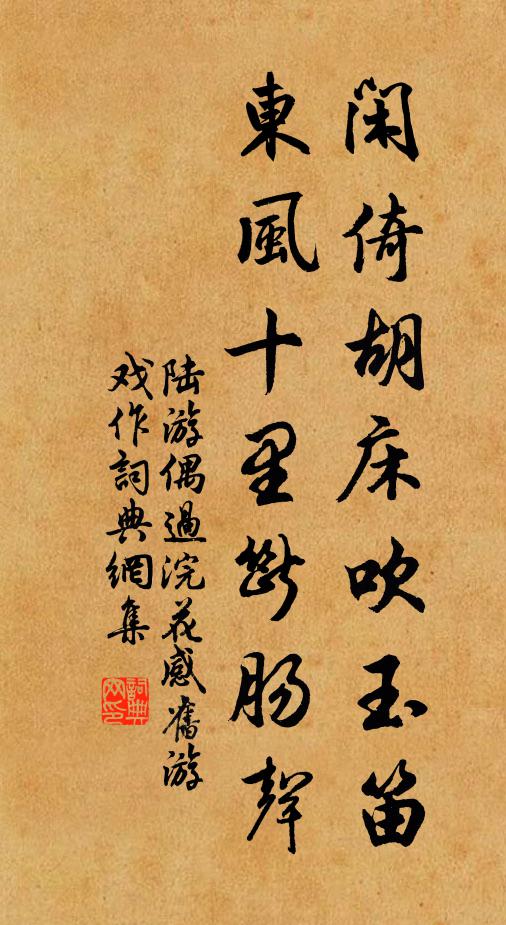 闲倚胡床吹玉笛
東風十里斷肠聲
陆游偶過浣花感舊游
戏作詞典網集
詞典网印